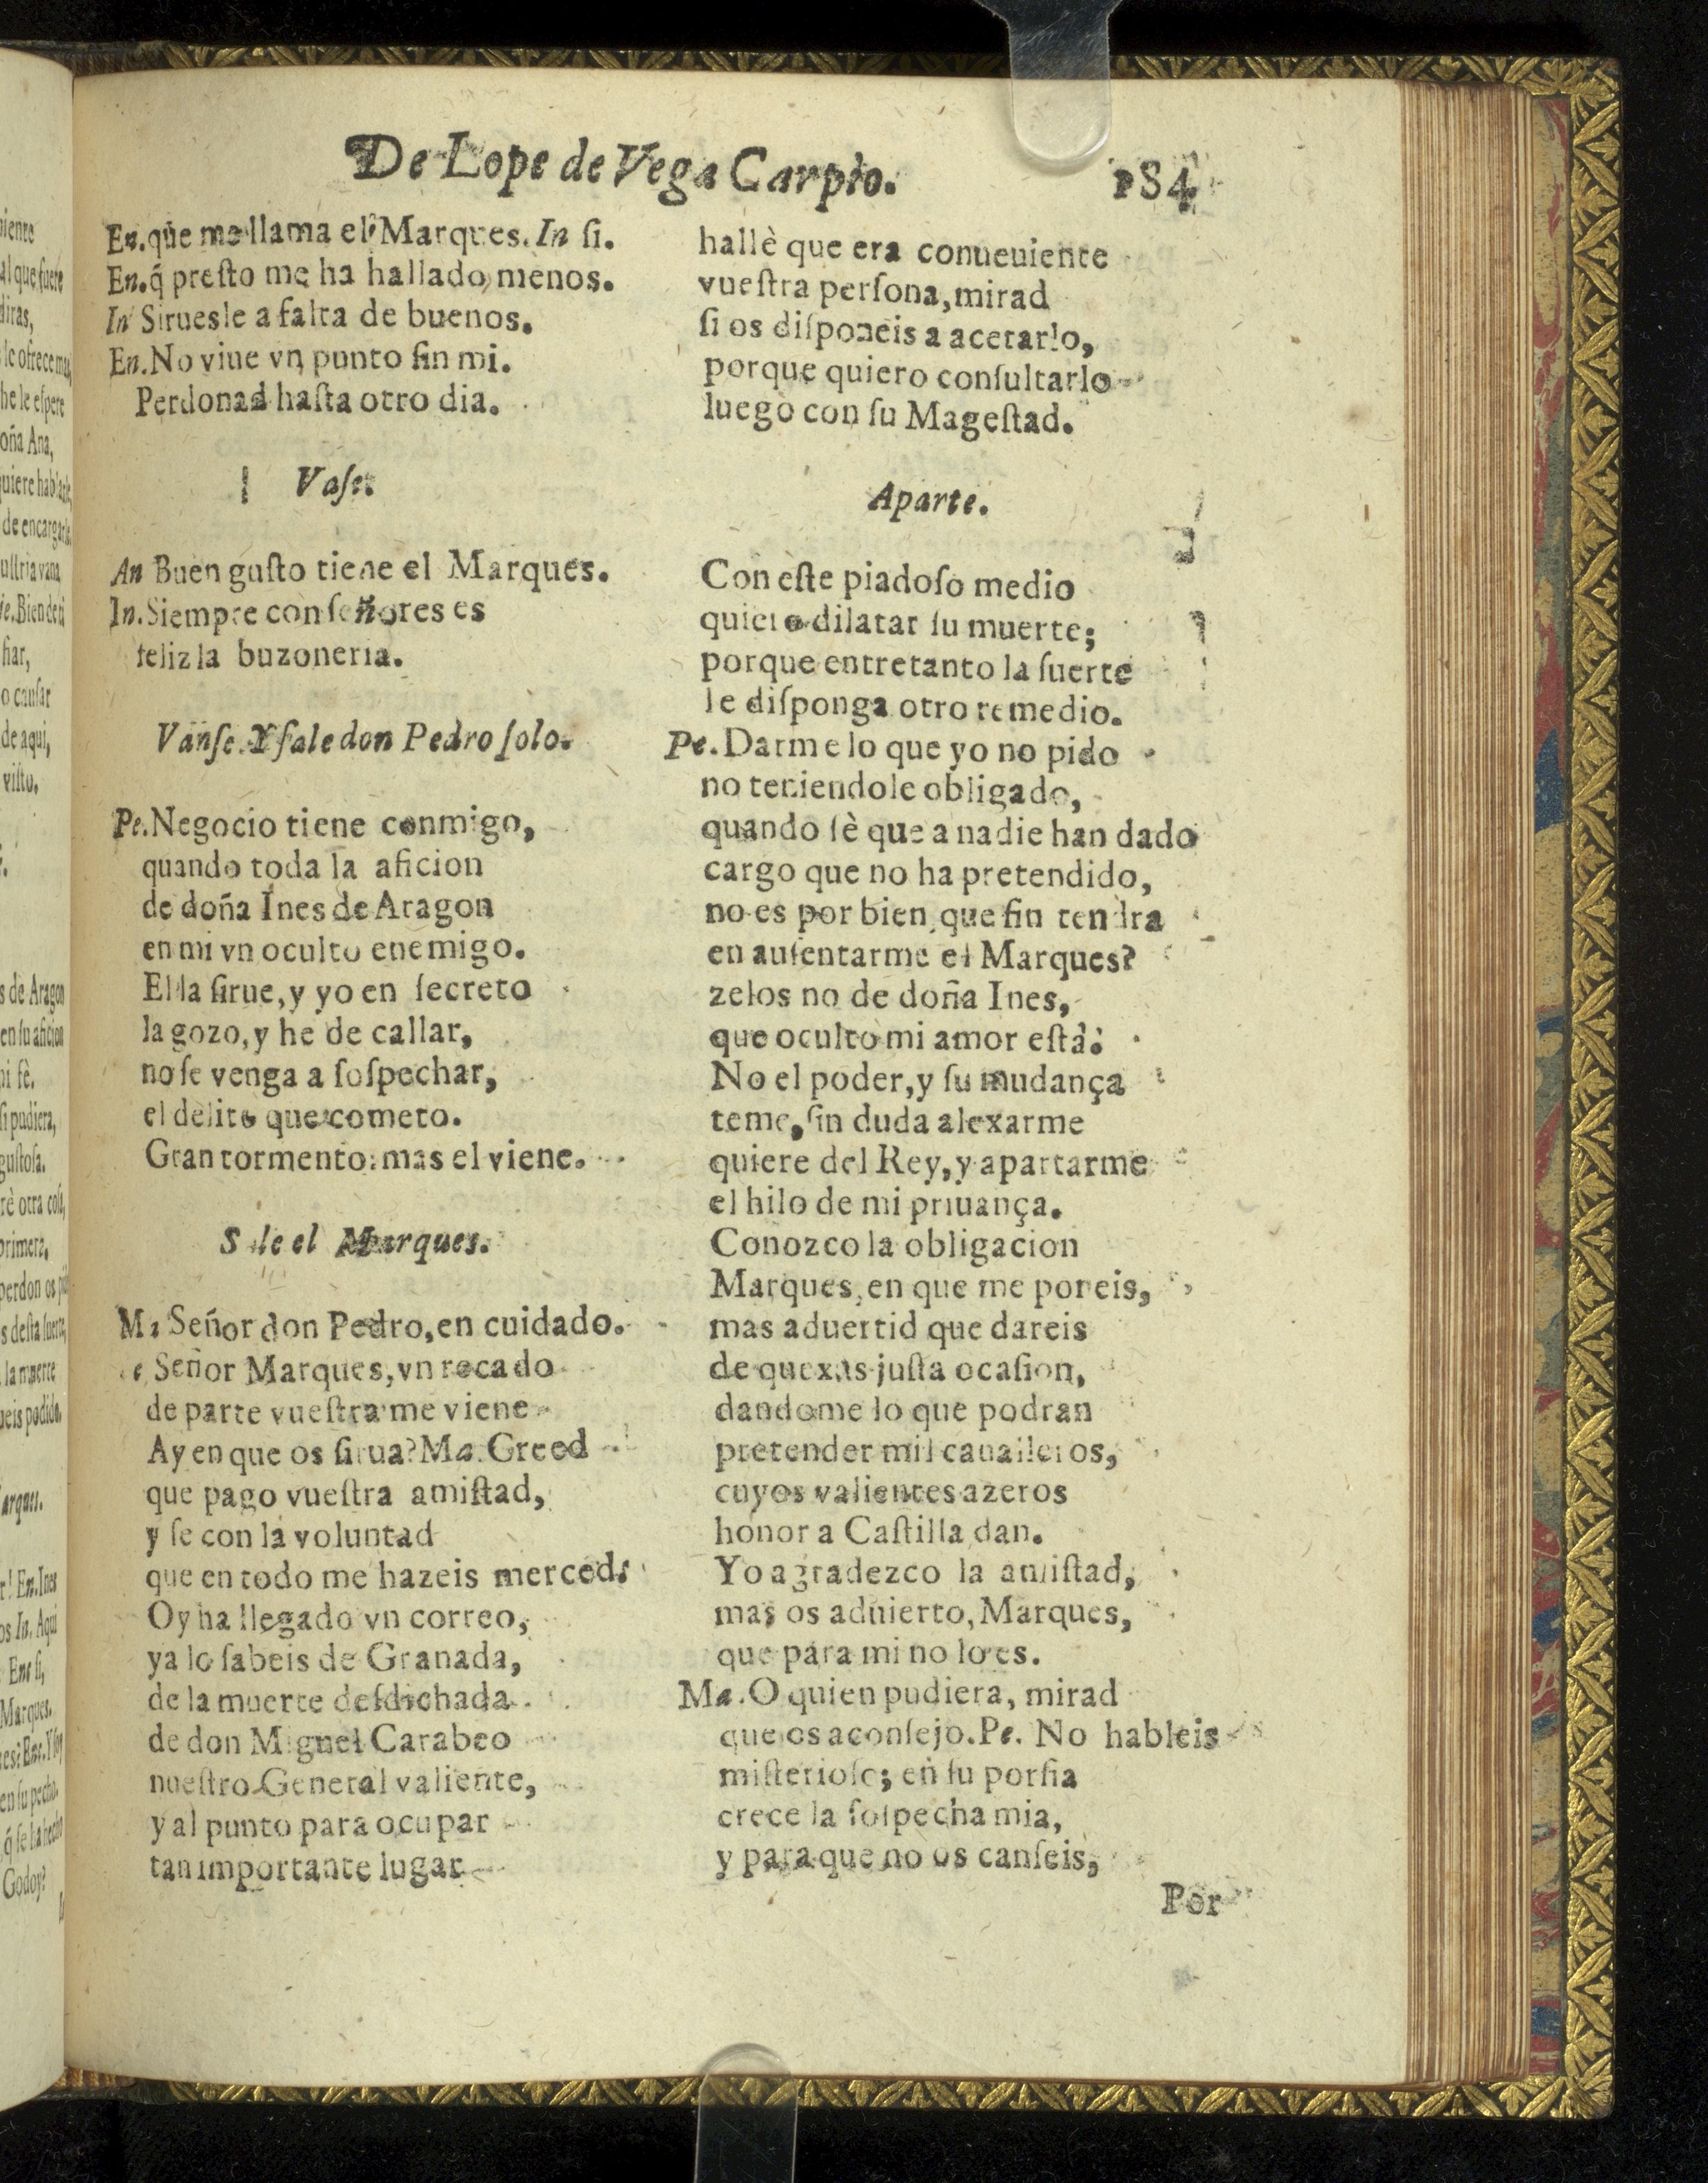 De Lope de Vega Carpio. 184
En. que me llama el Marques. In si.
En. q̃ presto me ha hallado menos.
In Siruesle a falta de buenos.
En. No viue vn punto sin mi.
Perdonad hasta otro dia.
Vase.
An Buen gusto tiene el Marques.
In. Siempre con señores es
feliz la buzoneria.
Vanse. Y sale don Pedro solo.
Pe. Negocio tiene conmigo,
quando toda la aficion
de doña Ines de Aragon
en mi vn oculto enemigo.
El la sirue, y yo en secreto
la gozo, y he de callar,
no se venga a sospechar,
el delito que cometo.
Gran tormento: mas el viene.
Sale el Marques.
Ma Señor don Pedro, en cuidado.
e Señor Marques, vn recado
de parte vuestra me viene
Ay en que os sirua? Ma. Creed
que pago vuestra amistad,
y se con la voluntad
que en todo me hazeis merced.
Oy ha llegado vn correo,
ya lo sabeis de Granada,
de la muerte desdichada
de don Miguel Carabeo
nuestro General valiente,
y al punto para ocupar
tan importante lugar
hallè que era conueniente
vuestra persona, mirad
si os disponeis a acetarlo,
porque quiero consultarlo
luego con su Magestad.
Aparte.
Con este piadoso medio
quiero dilatar su muerte;
porque entretanto la suerte
le disponga otro remedio.
Pe. Darme lo que yo no pido
no teniendole obligado,
quando sè que a nadie han dado
cargo que no ha pretendido,
no es por bien, que fin tendra
en ausentarme el Marques?
zelos no de doña Ines,
que oculto mi amor està:
No el poder, y su mudança
teme, sin duda alexarme
quiere del Rey, y apartarme
el hilo de mi priuança.
Conozco la obligacion
Marques, en que me poneis,
mas aduertid que dareis
de quexas justa ocasion,
dandome lo que podran
pretender mil caualleros,
cuyos valientes azeros
honor a Castilla dan.
Yo agradezco la amistad,
mas os aduierto, Marques,
que para mi no lo es.
Ma. O quien pudiera, mirad
que os aconsejo. Pe. No hableis
misterioso; en su porfia
crece la sospecha mia,
y para que no os canseis,
Por